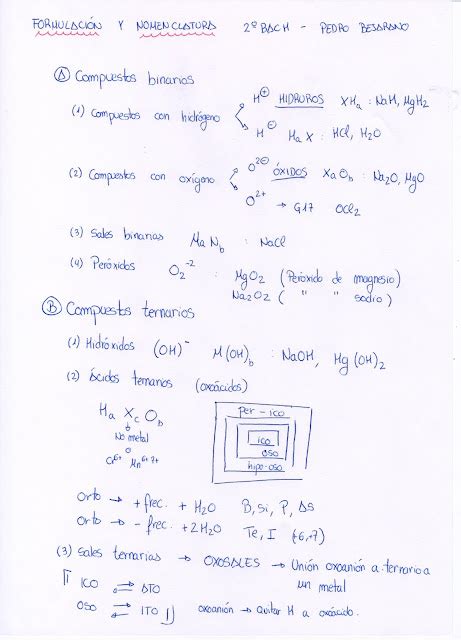 FORMULACIÓN Y NOMENCLATURA 2º BACH - PEDRO BEJARANO
Ⓐ Compuestos binarios
(1) Compuestos con hidrógeno
H⊕ HIDRUROS XHa : NaH, MgH2
H⊖ HaX : HCl, H2O
(2) Compuestos con oxígeno
O2⊖ ÓXIDOS XaOb : Na2O, MgO
O2+ → G17 OCl2
(3) Sales binarias MaNb : NaCl
(4) Peróxidos O2-2 : MgO2 (Peróxido de magnesio)
Na2O2 ( " " sodio)
Ⓑ Compuestos ternarios
(1) Hidróxidos (OH)- M(OH)b : NaOH, Mg(OH)2
(2) Ácidos ternarios (oxoácidos)
Ha Xc Ob
No metal
Cr6+ Mn6+7+
per-ico
ico
oso
hipo-oso
Orto → + frec. + H2O B, Si, P, As
Orto → - frec. + 2H2O Te, I (+6,+7)
(3) Sales ternarias → OXOSALES → Unión oxoanión a ternario a
un metal
ICO ⇌ ATO
OSO ⇌ ITO oxoanión → Quitar H a oxoácido.